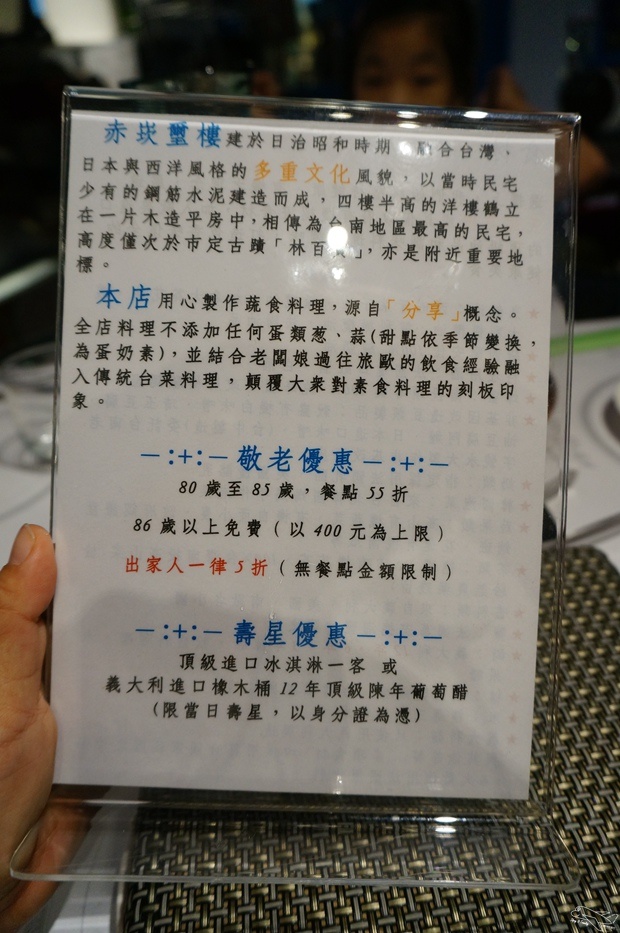 赤崁璽樓建於日治昭和時期，融合台灣、
日本與西洋風格的多重文化風貌，以當時民宅
少有的鋼筋水泥建造而成，四樓半高的洋樓鶴立
在一片木造平房中，相傳為台南地區最高的民宅，
高度僅次於市定古蹟「林百貨」，亦是附近重要地
標。
本店用心製作蔬食料理，源自「分享」概念。
全店料理不添加任何蛋類葱、蒜(甜點依季節變換，
為蛋奶素)，並結合老闆娘過往旅歐的飲食經驗融
入傳統台菜料理，顛覆大衆對素食料理的刻板印
象。
－:+:－敬老優惠－:+:－
80歲至85歲，餐點55折
86歲以上免費（以400元為上限）
出家人一律5折（無餐點金額限制）
－:+:－壽星優惠－:+:－
頂級進口冰淇淋一客 或
義大利進口橡木桶12年頂級陳年葡萄醋
(限當日壽星，以身分證為憑)